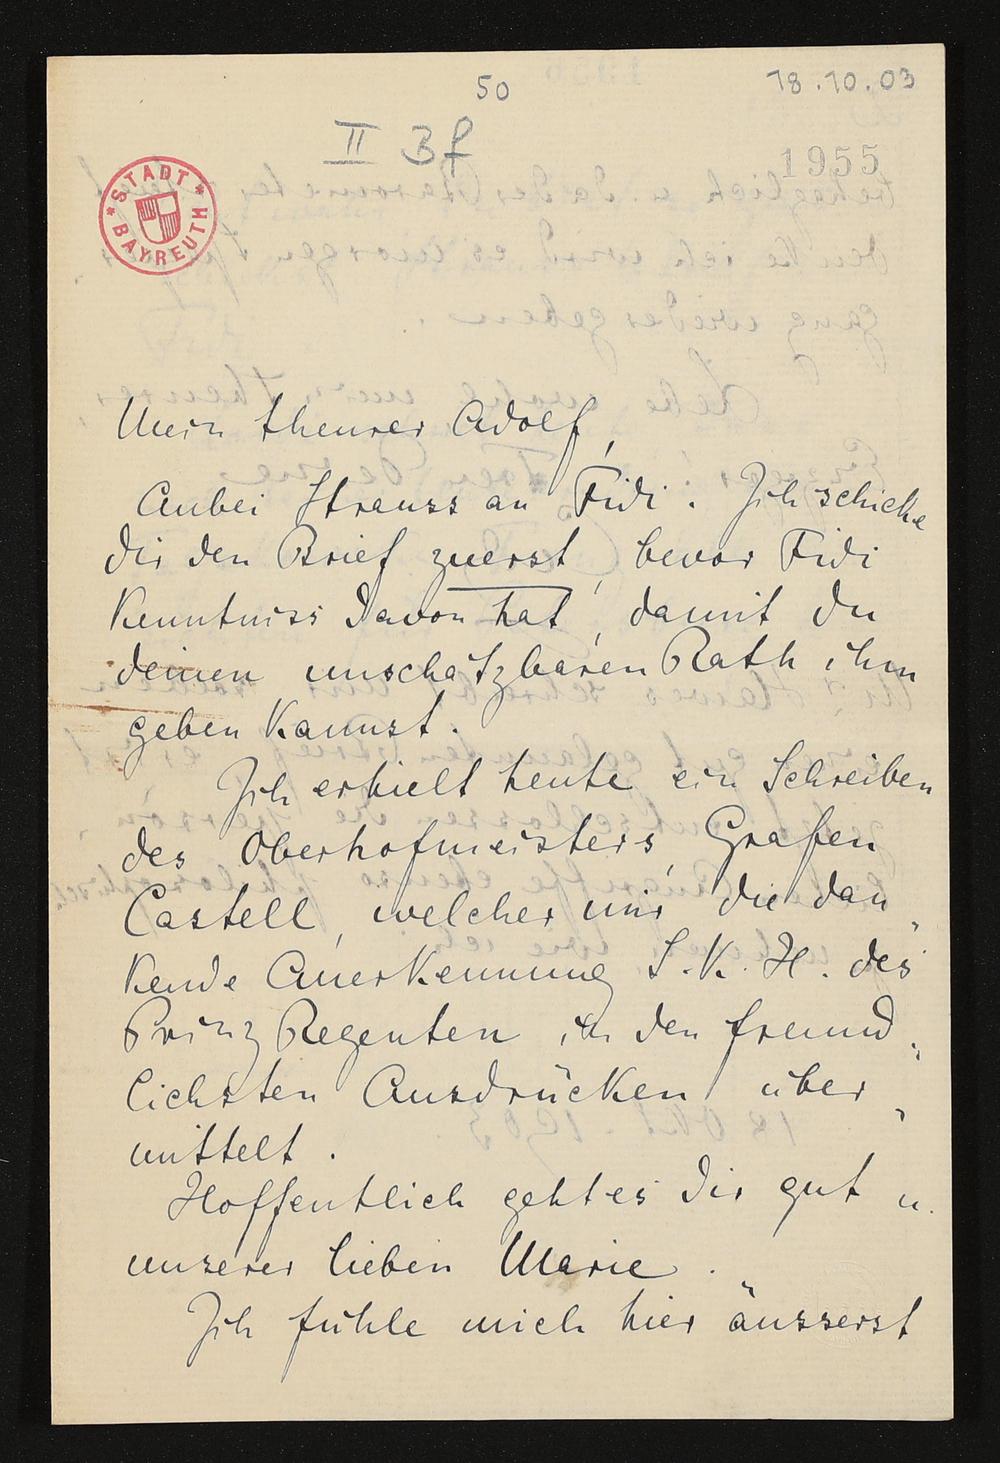 50
18.10.03
II 3f
1955
STADT BAYREUTH
Mein theurer Adolf,
Anbei Strauss an Fidi. Ich schicke
dir den Brief zuerst, bevor Fidi
Kenntniss davon hat, damit du
deinen unschätzbaren Rath ihm
geben kannst.
Ich erhielt heute ein Schreiben
des Oberhofmeisters, Grafen
Castell, welcher mir die dan„
kende Anerkennung S. K. H. des
Prinz Regenten in den freund„
lichsten Ausdrücken über„
mittelt.
Hoffentlich geht es dir gut u.
unserer lieben Marie.
Ich fühle mich hier äusserst